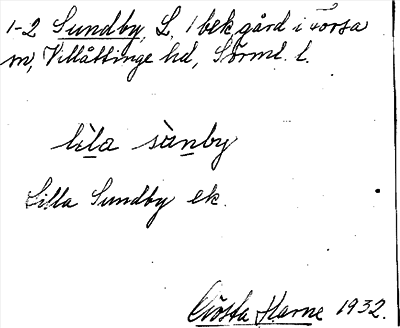 1-2 Sundby, L, 1 bek. gård i Forsa
sn, Villåttinge hd, Sörml. l.
lìla sànby
Lilla Sundby ek.
Gösta Harne 1932.